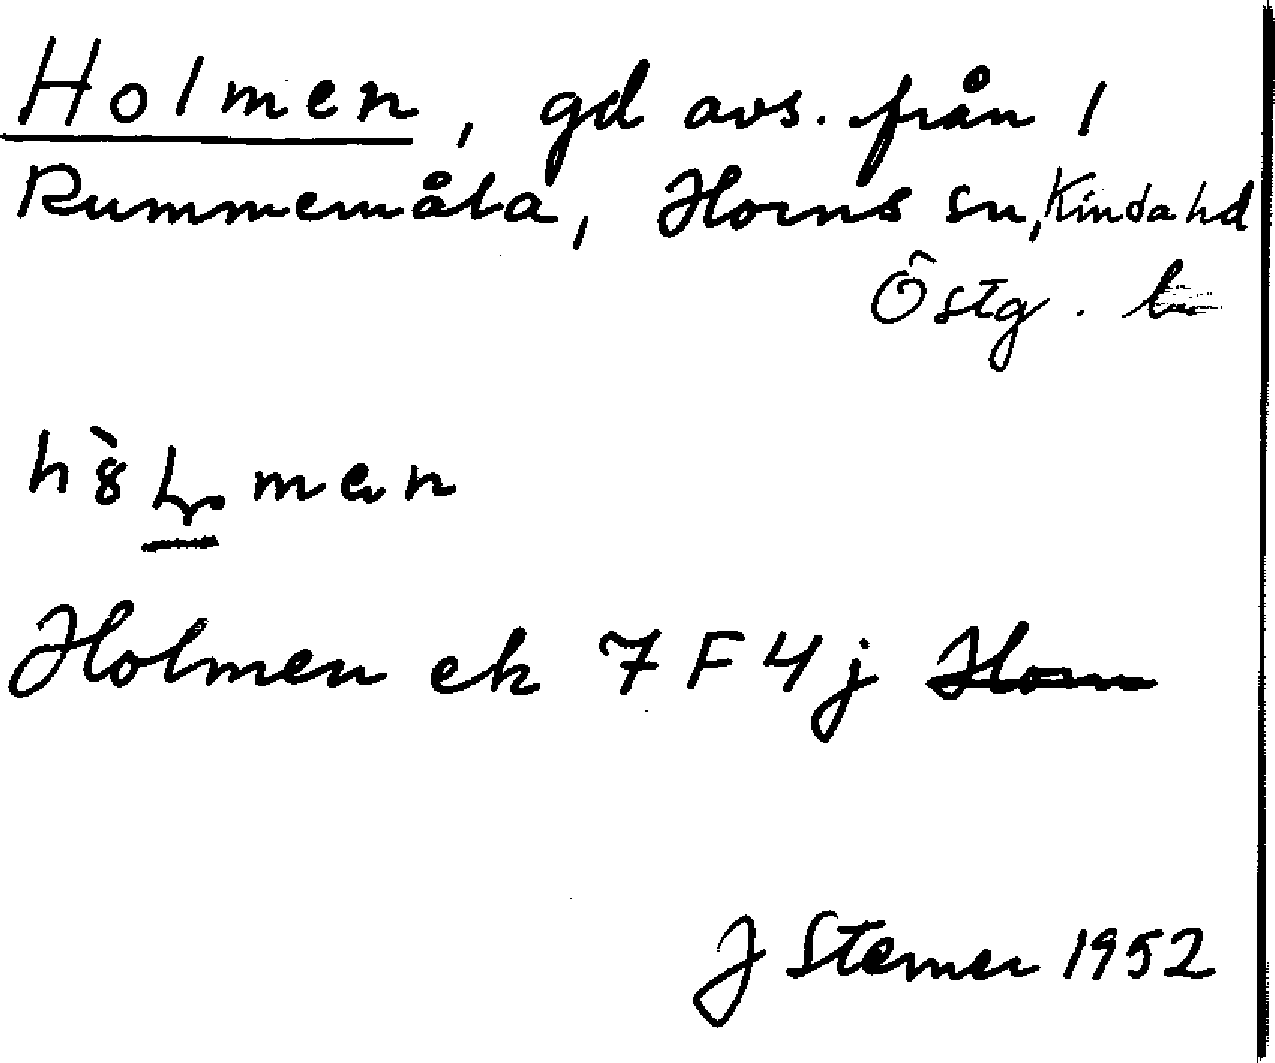 Holmen, gd avs. från 1
Rummemåla, Horns sn, Kinda hd
Östg. l.
Holmen ek 7 F 4 j Horn
J Stemer 1952